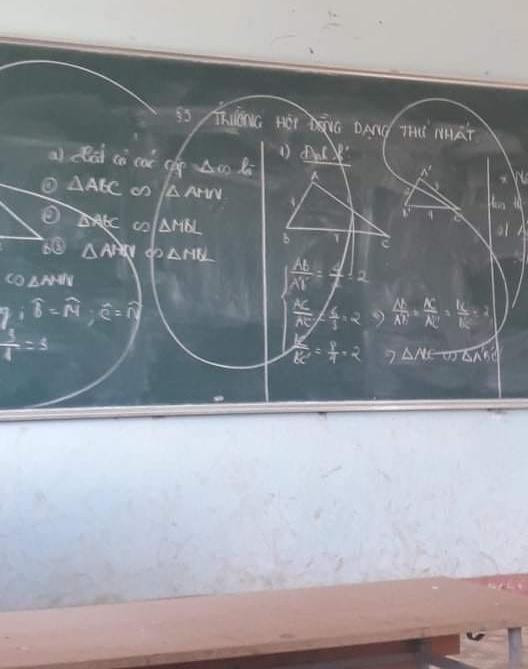 §5 TRƯỜNG HỢP ĐỒNG DẠNG THỨ NHẤT
a) Tất cả các cặp Δ ∽ là
① ΔABC ∽ ΔAMN
② ΔABC ∽ ΔMBL
③ ΔAMN ∽ ΔMBL
∽ ΔAMN
; B̂ = M̂ ; Ĉ = N̂
= 3
1) Định lí
A
B
C
A'
B'
C'
AB/A'B' = 4/2 = 2
AC/A'C' = 6/3 = 2 ⇒ AB/A'B' = AC/A'C' = BC/B'C' = 2
BC/B'C' = 8/4 = 2 ⇒ ΔABC ∽ ΔA'B'C'